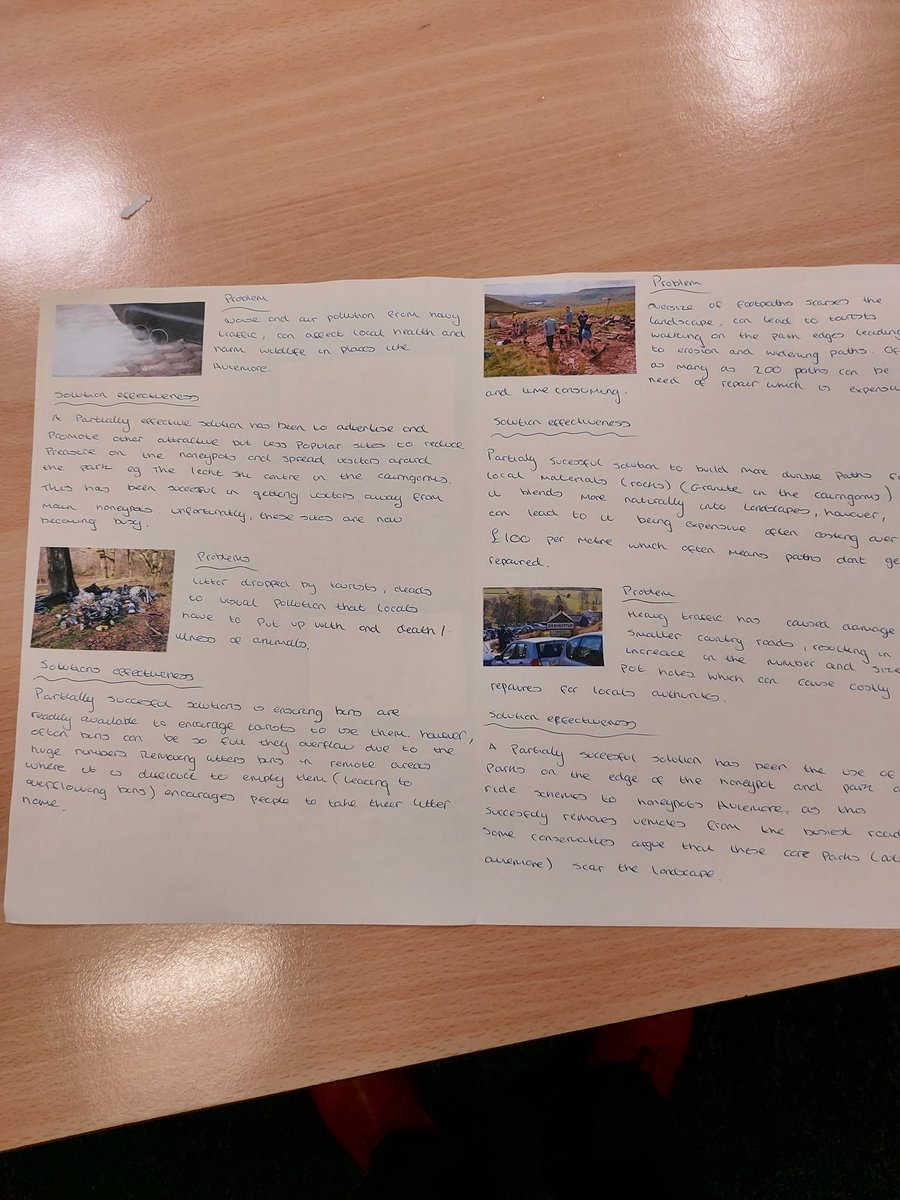 Problem
Noise and air pollution from heavy
traffic, can affect local health and
harm wildlife in places like
Aviemore.
Solution effectiveness
A Partially effective solution has been to advertise and
Promote other attractive but less Popular sites to reduce
Pressure on the honeypots and spread visitors around
the park eg The lecht ski centre in the cairngorms.
This has been succesful in getting visitors away from
main honeypots. unfortunatly, these sites are now
becoming busy.
Problems
Litter dropped by tourists, leads
to visual pollution that locals
have to Put up with and death/
illness of animals.
Solutions effectiveness
Partially successful solutions is ensuring bins are
readily available to encourage tourists to use them. however,
often bins can be so full they overflow due to the
huge numbers. Removing litters bins in remote areas
where it is difficult to empty them (leading to
overflowing bins) encourages people to take their litter
home.
Problem
oversize of footpaths scarses the
landscape, can lead to tourists
walking on the path edges leading
to erosion and widening paths.
as many as 200 paths can be
need of repair which is
and time consuming.
Solution effectiveness
Partialy sucessful solution to build more durable Paths
local materials (rocks) (Granite in the cairngorms)
it blends more naturally into landscapes, however,
can lead to it being expensive often costing over
£100 per metre which often means paths dont
repaired.
Problem
Heavy traffic has caused damage
smaller country roads, resulting in
increace in the number and size
Pot holes which can cause costly
repaires for locals authoritis.
Solution effectiveness
A Partially succesful solution has been the use of
Parks on the edge of the honeypot and park
ride schemes to honeypots Aviemore, as this
succesfully removes vehicles from the busiest
Some conservalies argue that these care Parks
aviemore) scar the landscape.